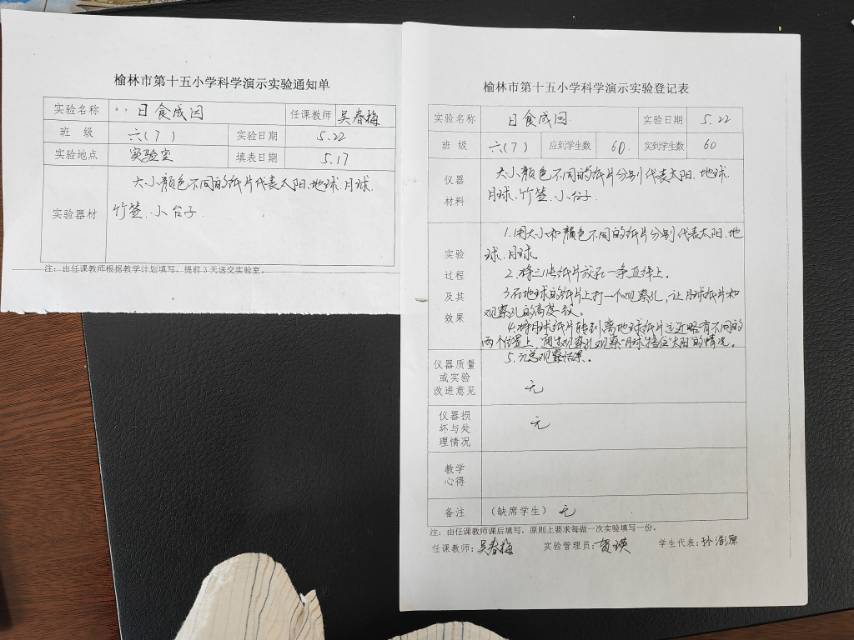 榆林市第十五小学科学演示实验通知单
实验名称 日食成因 任课教师 吴春梅
班 级 六(7) 实验日期 5.22
实验地点 实验室 填表日期 5.17
实验器材
大小颜色不同的纸片代表太阳、地球、月球、
竹签、小台子.
注：由任课教师根据教学计划填写，提前3天送交实验室。
榆林市第十五小学科学演示实验登记表
实验名称 日食成因 实验日期 5.22
班 级 六(7) 应到学生数 60. 实到学生数 60
仪器
材料
大小颜色不同的纸片分别代表太阳、地球、
月球、竹签、小台子.
实验
过程
及其
效果
1.用大小和颜色不同的纸片分别代表太阳、地
球、月球.
2.将三张纸片放在一条直线上。
3.在地球的纸片上打一个观察孔，让月球纸片和
观察孔的高度一致。
4.将月球纸片转到离地球纸片远近略有不同的
两个位置上，通过观察孔观察"月球"挡住"太阳"的情况。
5.汇总观察结果。
仪器质量
或实验
改进意见
无
仪器损
坏与处
理情况
无
教学
心得
备注 （缺席学生） 无
注：由任课教师课后填写，原则上要求每做一次实验填写一份。
任课教师：吴春梅 实验管理员：贺瑛 学生代表：